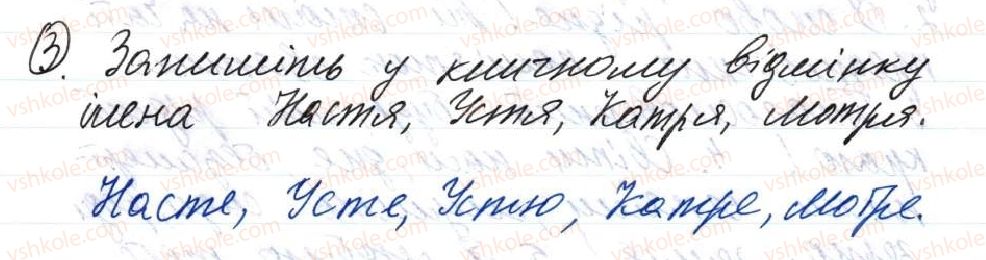 3. Запишіть у кличному відмінку
імена Настя, Устя, Катря, Мотря.
Насте, Усте, Устю, Катре, Мотре.